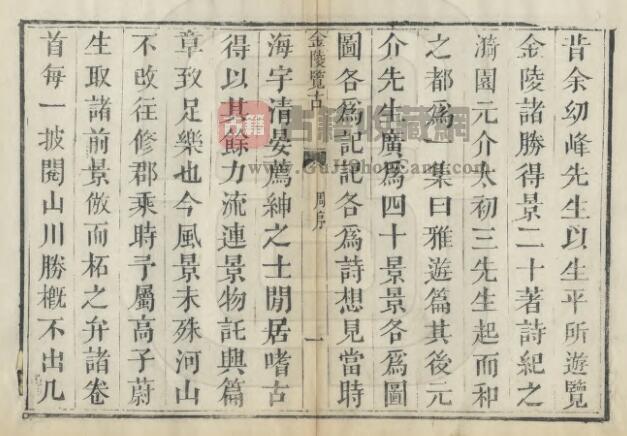 昔余幼峰先生以生平所遊覽
金陵諸勝得景二十著詩紀之
漪園元介太初三先生起而和
之都爲一集曰雅遊篇其後元
介先生廣爲四十景景各爲圖
圖各爲記記各爲詩想見當時
金陵覽古
周序
一
海宇清晏薦紳之士閒居嗜古
得以其餘力流連景物託興篇
章致足樂也今風景未殊河山
不改往修郡乘時予屬高子蔚
生取諸前景倣而柘之弁諸卷
首每一披閱山川勝槪不出几
古籍
古籍收藏網
www.GuJiShouCang.com